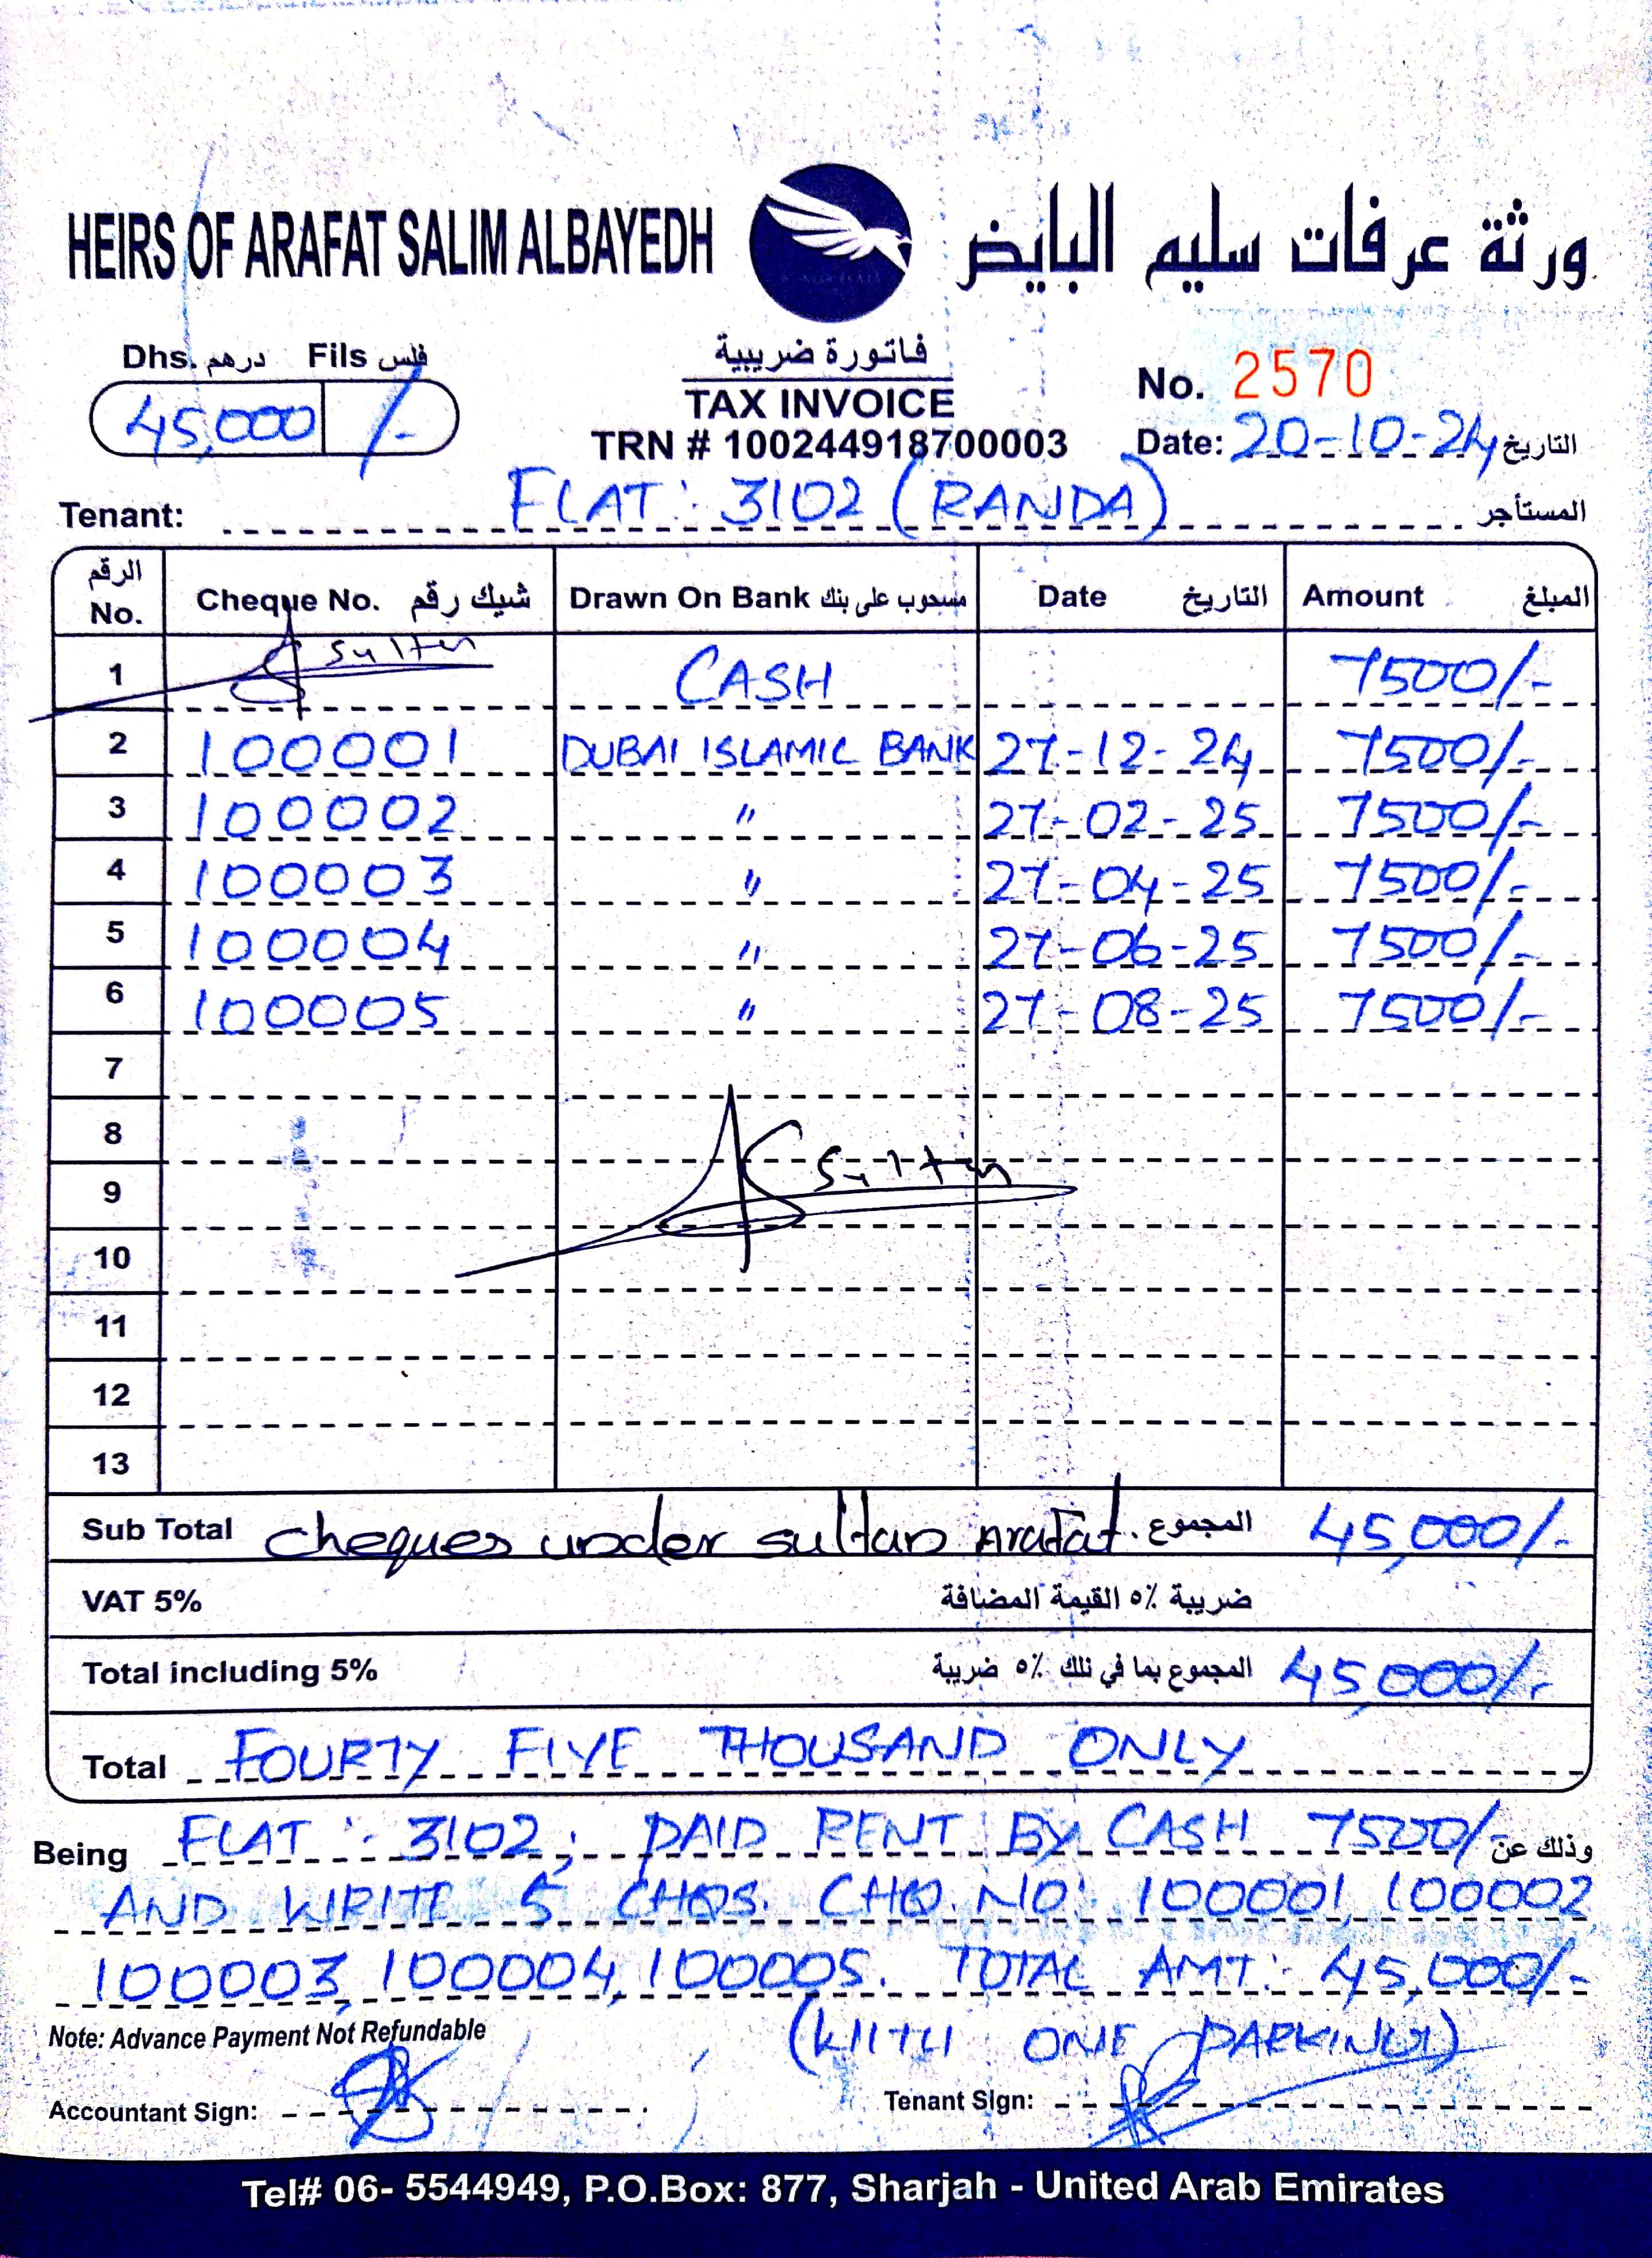 HEIRS OF ARAFAT SALIM ALBAYEDH ورثة عرفات سليم البايض
Dhs. درهم Fils فلس
45,000 /-
فاتورة ضريبية
TAX INVOICE
TRN # 100244918700003
No. 2570
Date: 20-10-24 التاريخ
Tenant: FLAT: 3102 (RANDA) المستأجر
الرقم No. Cheque No. شيك رقم Drawn On Bank مسحوب على بنك Date التاريخ Amount المبلغ
1 Sultan CASH 7500/-
2 100001 DUBAI ISLAMIC BANK 27-12-24 7500/-
3 100002 " 27-02-25 7500/-
4 100003 " 27-04-25 7500/-
5 100004 " 27-06-25 7500/-
6 100005 " 27-08-25 7500/-
7
8
9 Sultan
10
11
12
13
Sub Total cheques under sultan Arafat. المجموع 45,000/-
VAT 5% ضريبة ٥٪ القيمة المضافة
Total including 5% المجموع بما في ذلك ٥٪ ضريبة 45,000/-
Total FOURTY FIVE THOUSAND ONLY
Being FLAT: 3102; PAID RENT BY CASH 7500/- وذلك عن
AND WRITE 5 CHQS. CHQ. NO: 100001, 100002
100003, 100004, 100005. TOTAL AMT: 45,000/-
Note: Advance Payment Not Refundable (WITH ONE PARKING)
Accountant Sign: Tenant Sign:
Tel# 06- 5544949, P.O.Box: 877, Sharjah - United Arab Emirates